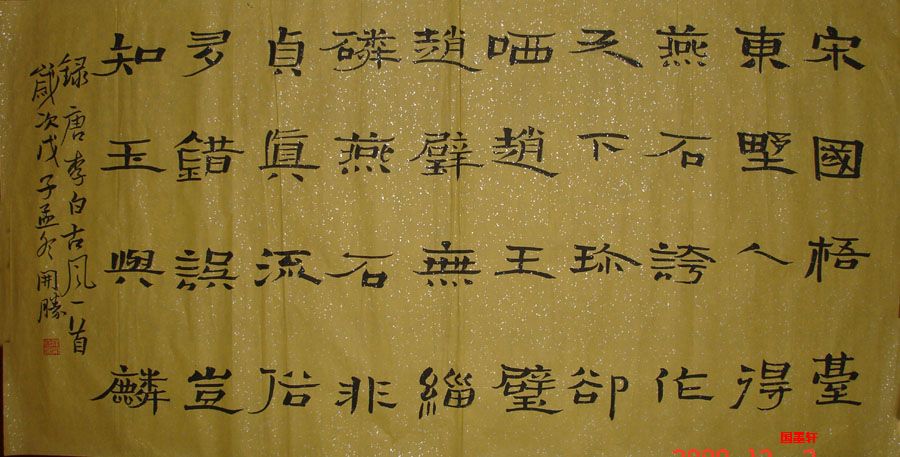 宋國梧臺
東墅人得
燕石誇作
天下珍卻
哂趙王璧
趙璧無緇
磷燕石非
貞眞流俗
多錯誤豈
知玉與麟
録唐李白古風一首
歲次戊子孟冬開勝
国墨轩